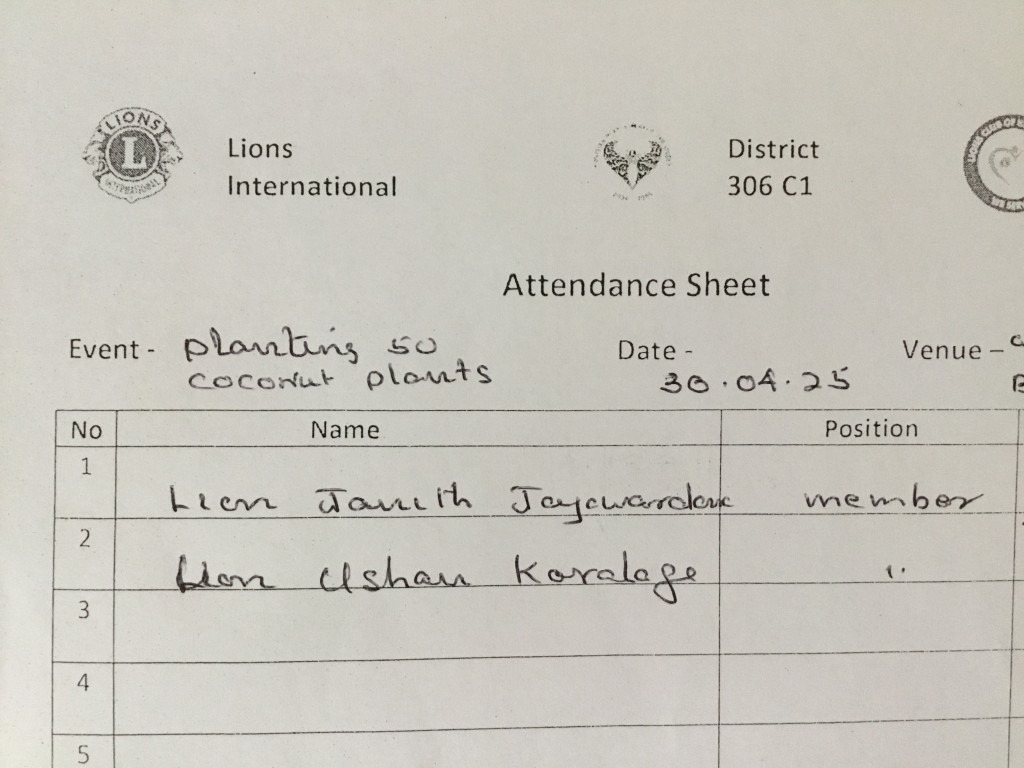 LIONS
L
INTERNATIONAL
Lions
International
District
306 C1
Attendance Sheet
Event - planting 50
coconut plants
Date -
30.04.25
Venue –
No Name Position
1
Lion Janith Jayawardana member
2
Lion Ushan Koralage "
3
4
5